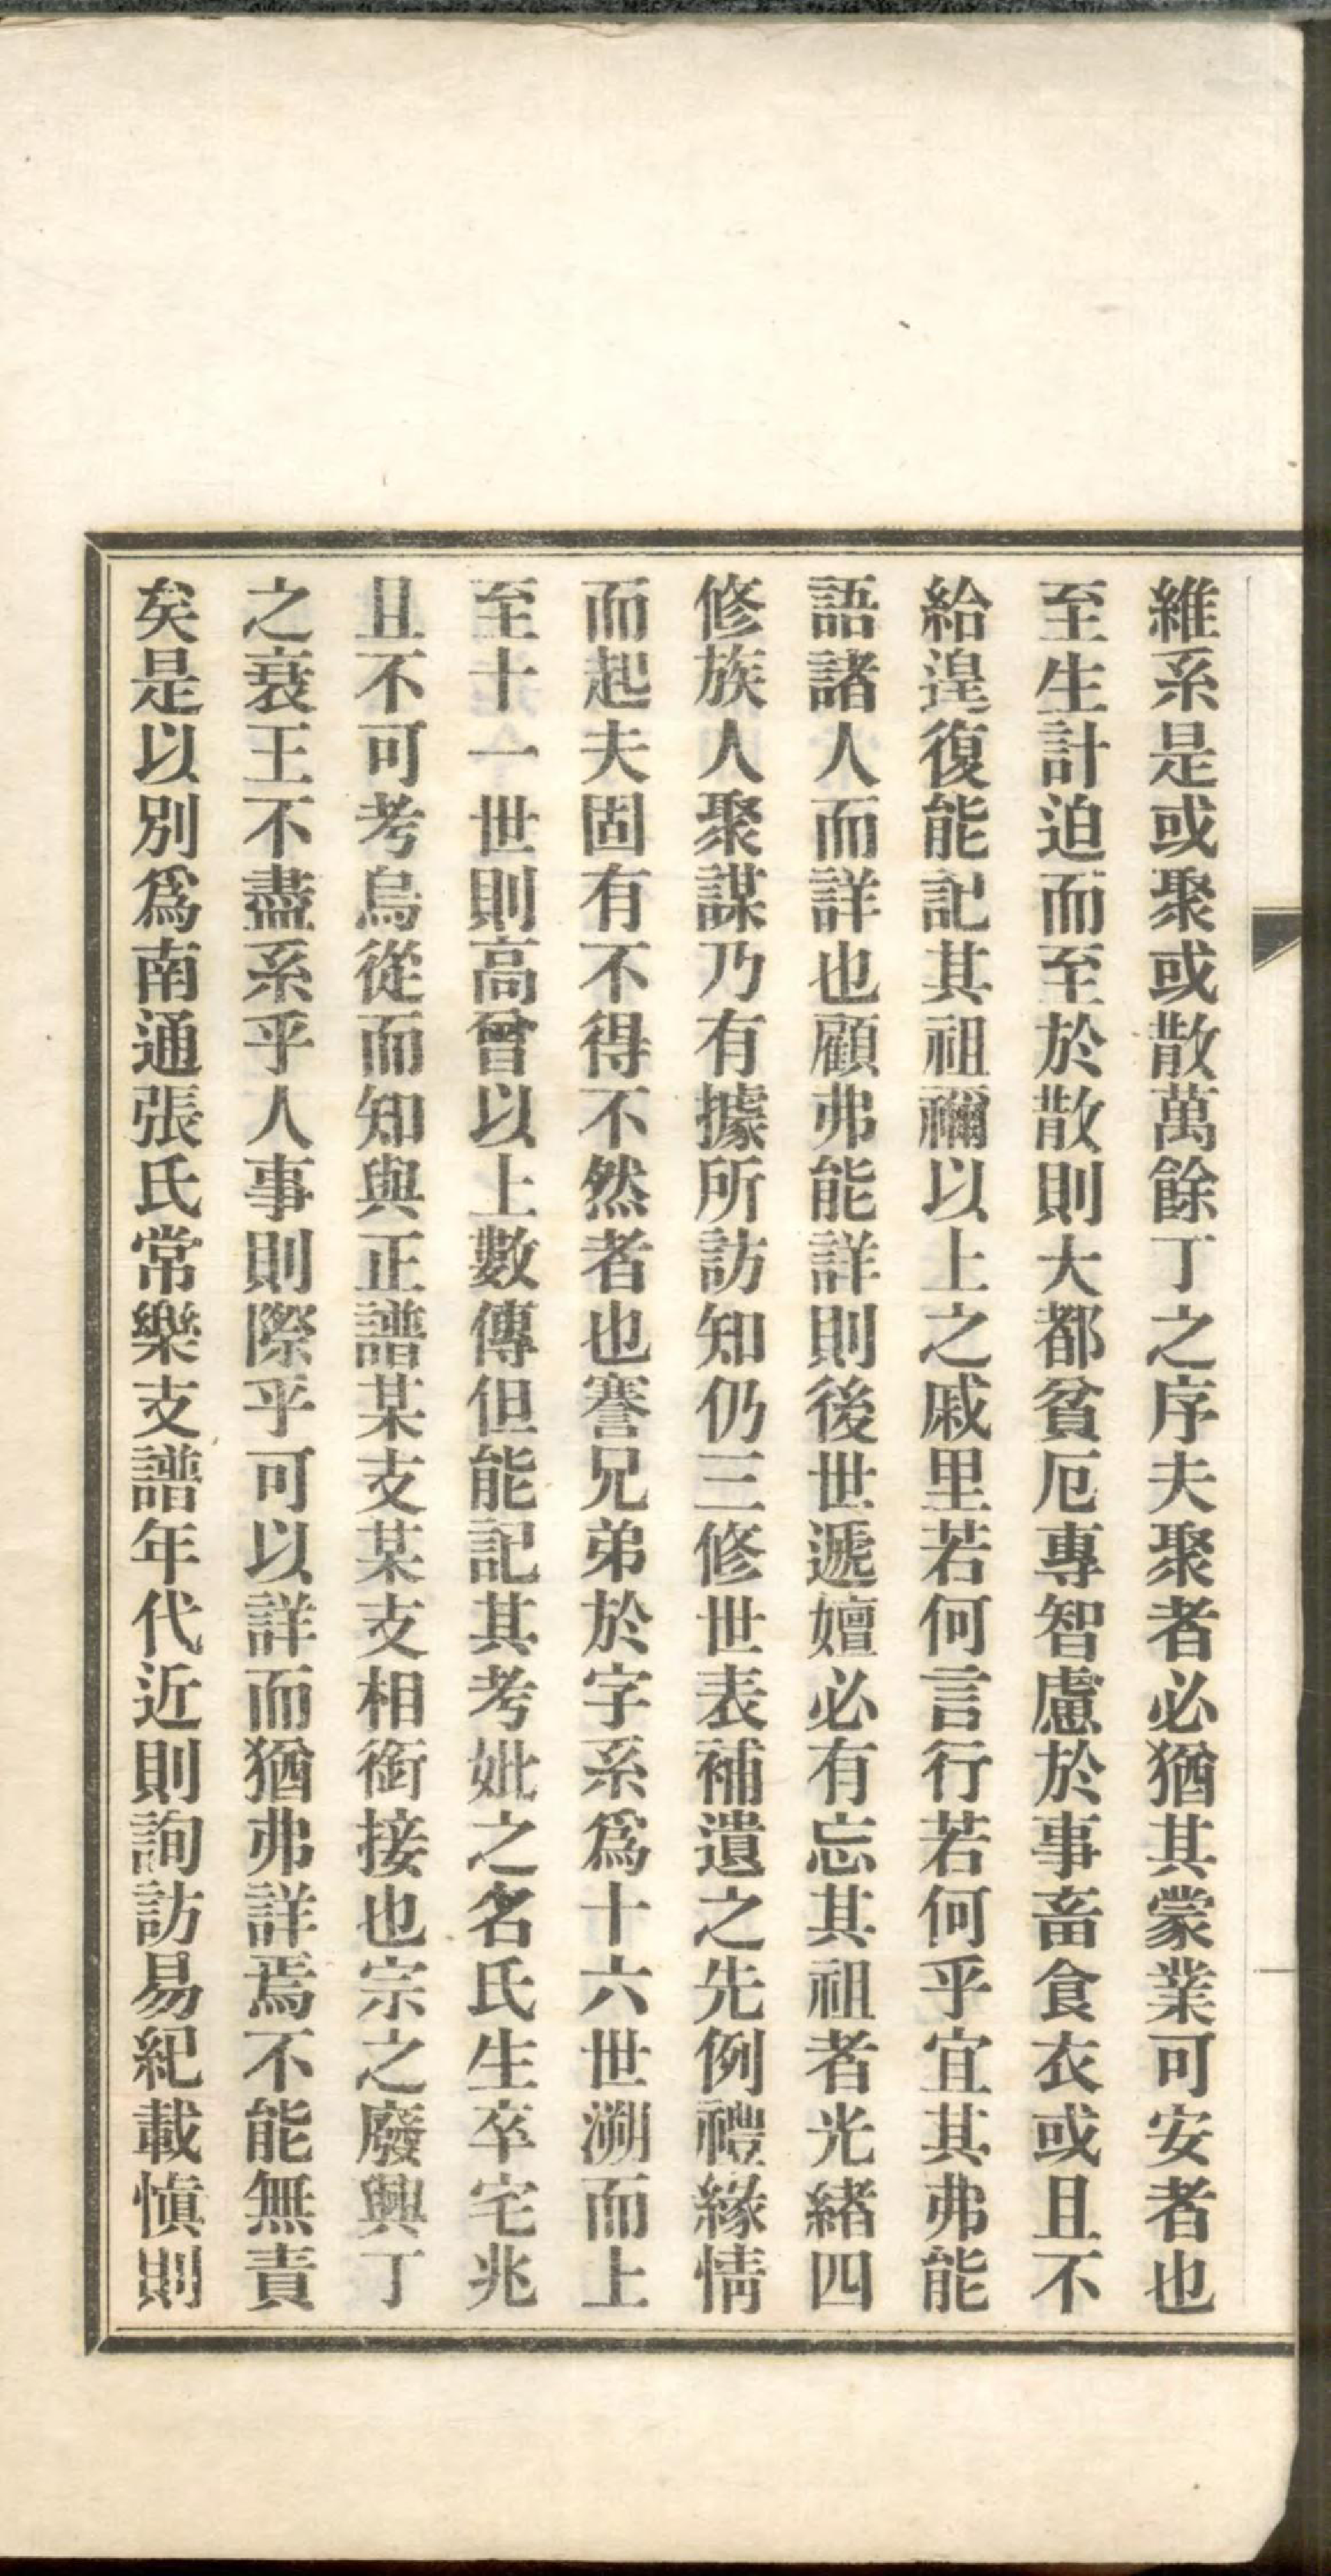 維系是或聚或散萬餘丁之序夫聚者必猶其蒙業可安者也
至生計迫而至於散則大都貧厄專智慮於事畜食衣或且不
給遑復能記其祖禰以上之戚里若何言行若何乎宜其弗能
語諸人而詳也顧弗能詳則後世遞嬗必有忘其祖者光緒四
修族人聚謀乃有據所訪知仍三修世表補遺之先例禮緣情
而起夫固有不得不然者也謇兄弟於字系為十六世溯而上
至十一世則高曾以上數傳但能記其考妣之名氏生卒宅兆
且不可考烏從而知與正譜某支某支相銜接也宗之廢興丁
之衰王不盡系乎人事則際乎可以詳而猶弗詳焉不能無責
矣是以別為南通張氏常樂支譜年代近則詢訪易紀載慎則